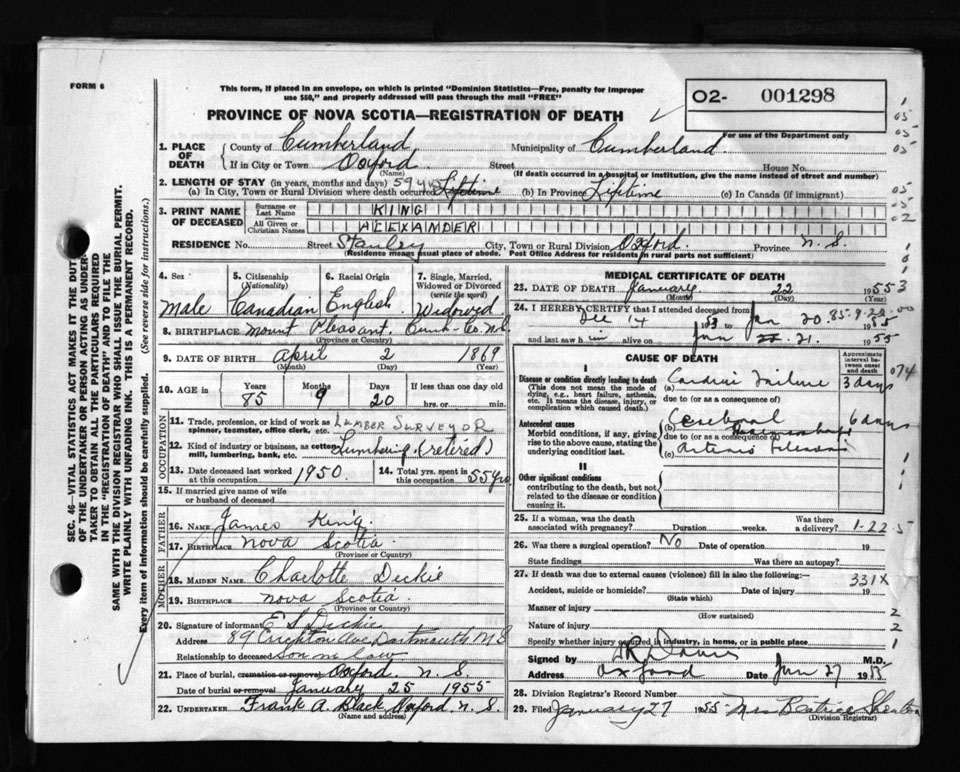 FORM 6
This form, if placed in an envelope, on which is printed "Dominion Statistics—Free, penalty for improper
use $50," and properly addressed will pass through the mail "FREE"
O2- 001298
For use of the Department only
PROVINCE OF NOVA SCOTIA—REGISTRATION OF DEATH
1. PLACE OF DEATH County of Cumberland Municipality of Cumberland
If in City or Town Oxford Street House No.
(Name) (If death occurred in a hospital or institution, give the name instead of street and number)
2. LENGTH OF STAY (in years, months and days) 59 yrs
(a) In City, Town or Rural Division where death occurred Lifetime (b) In Province Lifetime (c) In Canada (if immigrant)
3. PRINT NAME OF DECEASED Surname or Last Name KING
All Given or Christian Names ALEXANDER
RESIDENCE No. Street Stanley City, Town or Rural Division Oxford Province N. S.
(Residence means usual place of abode. Post Office Address for residents in rural parts not sufficient)
4. Sex Male
5. Citizenship (Nationality) Canadian
6. Racial Origin English
7. Single, Married, Widowed or Divorced (write the word) Widowed
8. BIRTHPLACE Mount Pleasant, Cumb. Co. N.S.
(Province or Country)
9. DATE OF BIRTH April 2 1869
(Month) (Day) (Year)
10. AGE in Years 85 Months 9 Days 20 If less than one day old hrs. or min.
OCCUPATION
11. Trade, profession, or kind of work as spinner, teamster, office clerk, etc. LUMBER SURVEYOR
12. Kind of industry or business, as cotton mill, lumbering, bank, etc. Lumbering (retired)
13. Date deceased last worked at this occupation 1950
14. Total yrs. spent in this occupation 55 yrs
15. If married give name of wife or husband of deceased
FATHER
16. NAME James King
17. BIRTHPLACE Nova Scotia
(Province or Country)
MOTHER
18. MAIDEN NAME Charlotte Dickie
19. BIRTHPLACE Nova Scotia
(Province or Country)
20. Signature of informant E S Dickie
Address 89 Crichton Ave Dartmouth N.S
Relationship to deceased Son in law
21. Place of burial, cremation or removal Oxford. N. S.
Date of burial or removal January 25 1955
22. UNDERTAKER Frank A. Black Oxford. N. S.
(Name and address)
MEDICAL CERTIFICATE OF DEATH
23. DATE OF DEATH January 22 1955
(Month) (Day) (Year)
24. I HEREBY CERTIFY that I attended deceased from
Dec 14 1953 to Jan 20. 1955
85-9-20
and last saw him alive on Jan 21. 1955
CAUSE OF DEATH
Approximate interval between onset and death
I
Disease or condition directly leading to death
(This does not mean the mode of dying, e.g., heart failure, asthenia, etc. It means the disease, injury, or complication which caused death.)
(a) Cardiac Failure 3 days
due to (or as a consequence of)
Antecedent causes
Morbid conditions, if any, giving rise to the above cause, stating the underlying condition last.
(b) Cerebral Haemorrhage 6 days
due to (or as a consequence of)
(c) Arterio
II
Other significant conditions
contributing to the death, but not related to the disease or condition causing it.
25. If a woman, was the death associated with pregnancy? Duration weeks. Was there a delivery?
1-22-5
26. Was there a surgical operation? No Date of operation 19
State findings Was there an autopsy?
27. If death was due to external causes (violence) fill in also the following:—
331X
Accident, suicide or homicide? Date of injury 19
(State which)
Manner of injury
(How sustained)
Nature of injury
Specify whether injury occurred in industry, in home, or in public place
Signed by M.D.
Address Oxford Date Jan 27 1955
28. Division Registrar's Record Number
29. Filed January 27 1955 Mrs Beatrice
(Division Registrar)
SEC. 46—VITAL STATISTICS ACT MAKES IT THE DUTY
OF THE UNDERTAKER OR PERSON ACTING AS UNDER-
TAKER TO OBTAIN ALL THE PARTICULARS REQUIRED
IN THE "REGISTRATION OF DEATH" AND TO FILE THE
SAME WITH THE DIVISION REGISTRAR WHO SHALL ISSUE THE BURIAL PERMIT.
WRITE PLAINLY WITH UNFADING INK. THIS IS A PERMANENT RECORD.
Every item of information should be carefully supplied. (See reverse side for instructions.)